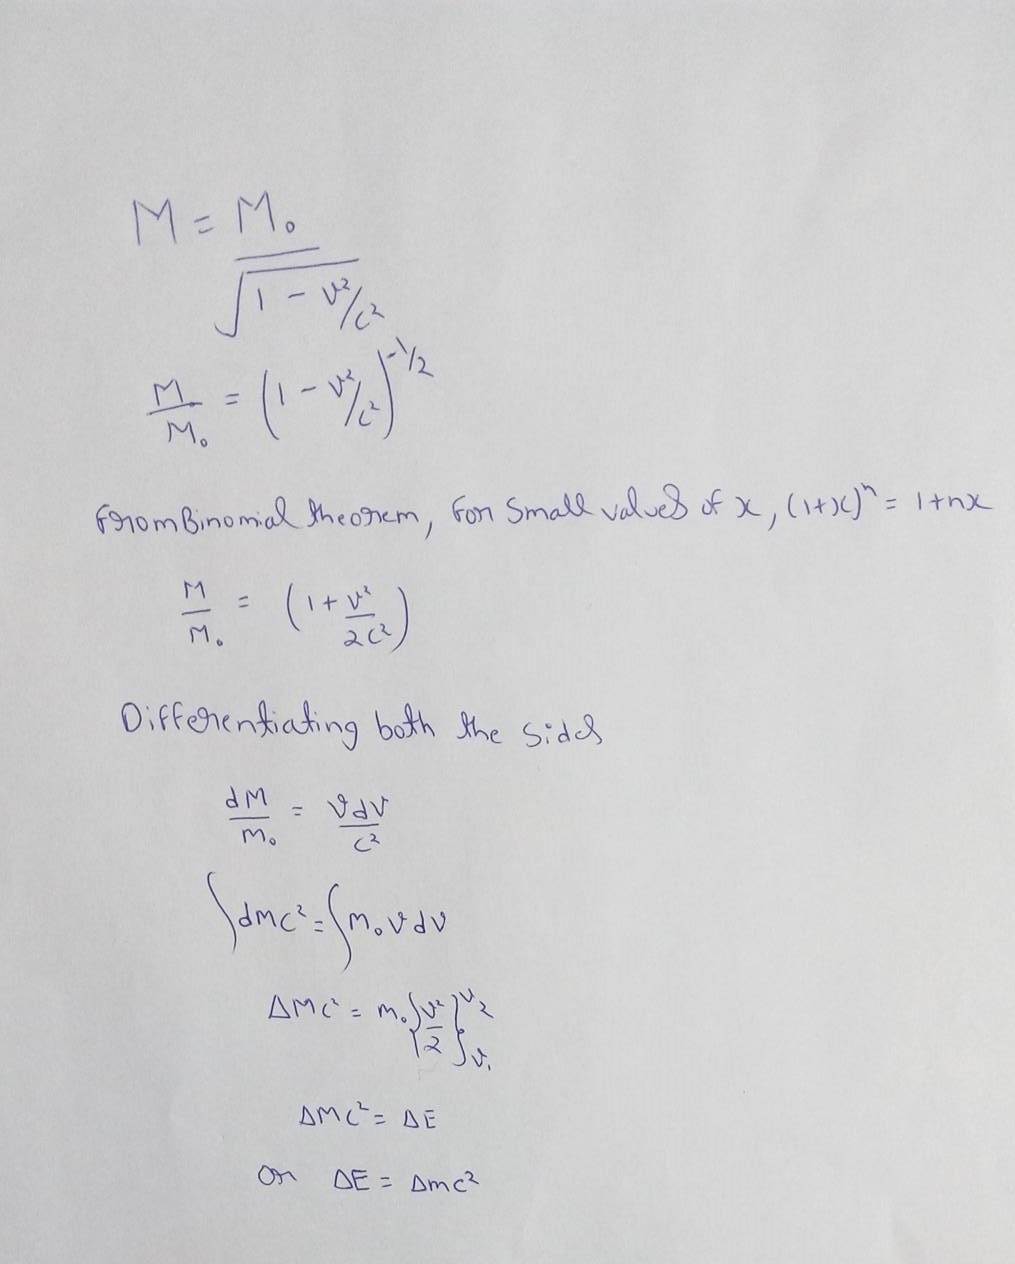 M = M₀
√1 - v²/c²
M/M₀ = (1 - v²/c²)^-1/2
From Binomial theorem, For Small values of x, (1+x)ⁿ = 1+nx
M/M₀ = (1 + v²/2c²)
Differentiating both the sides
dM/M₀ = vdv/c²
∫dmc² = ∫m₀vdv
ΔMc² = m₀{v²/2}^v₂_v₁
ΔMc² = ΔE
or ΔE = Δmc²